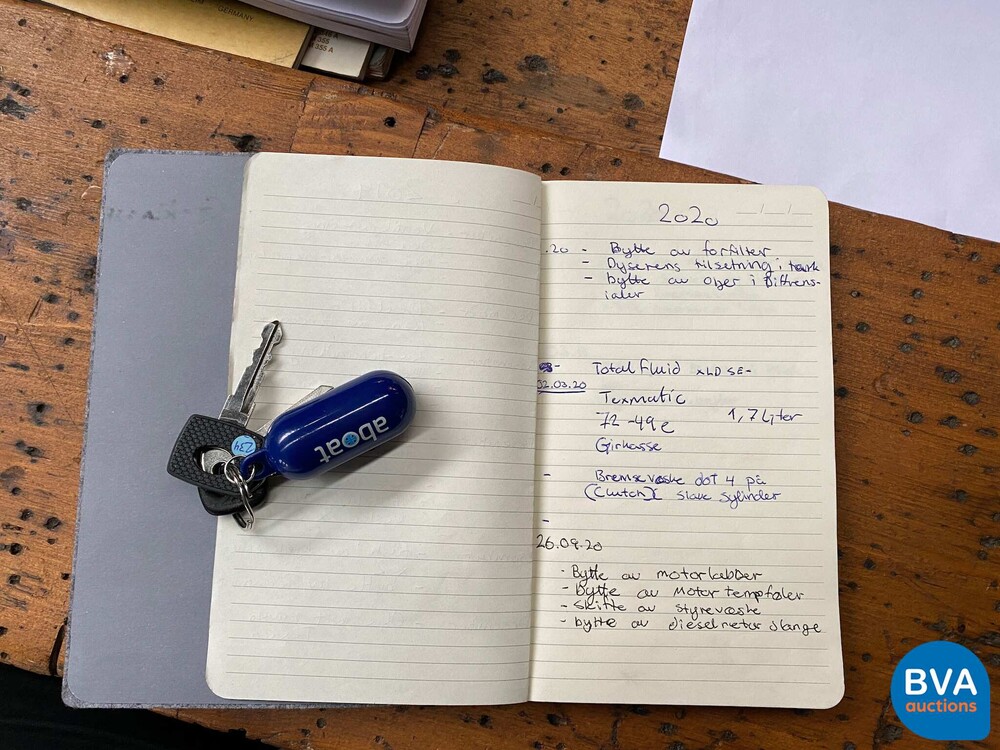 GERMANY
355 A
2020
.20 - Bytte av forfilter
- Dyserens tilsetning i tank
- bytte av oljer i Diffrens-
ialer
Total fluid XLD SE-
02.03.20
Texmatic
1,7 liter
Girkasse
- Bremsevæske dot 4 på
(Clutch) slave sylinder
-
26.09.20
- Bytte av motorlabber
- bytte av Motor tempføler
- Skifte av styrevæske
- bytte av dieselretur slange
aboat
234
BVA
auctions